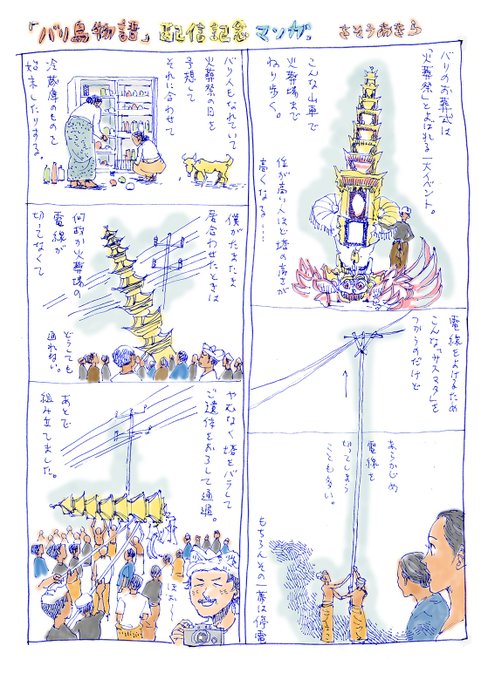 「バリ島物語」配信記念マンガ
さそうあきら
バリのお葬式は
「火葬祭」とよばれる一大イベント。
こんな山車で
火葬場まで
ねり歩く。
位が高い人ほど塔の高さが
高くなる…
電線をよけるため
こんな「サスマタ」を
つかうのだけど
あらかじめ
電線を
切ってしまう
ことも多い。
もちろんその一帯は停電
バリ人もなれていて
火葬祭の日を
予想して
それに合わせて
冷蔵庫のものを
始末したりする。
僕がたまたま
居合わせたときは
何故か火葬場の
電線が
切ってなくて
どうしても
通れない。
やむなく塔をバラして
ご遺体をおろして通過。
あとで
組み立てました。